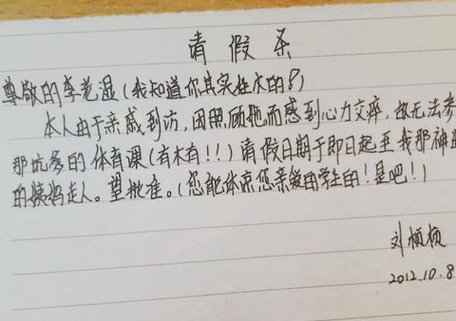 请假条
尊敬的李老湿(我知道你其实
本人由于亲戚到访,因照顾她而感到心力交瘁,故无法参
那坑爹的体育课(有木有!!)请假日期于即日起至我那神
的姨妈走人。望批准。(您能体谅您亲爱的学生的!是吧!)
刘
2012.10.8